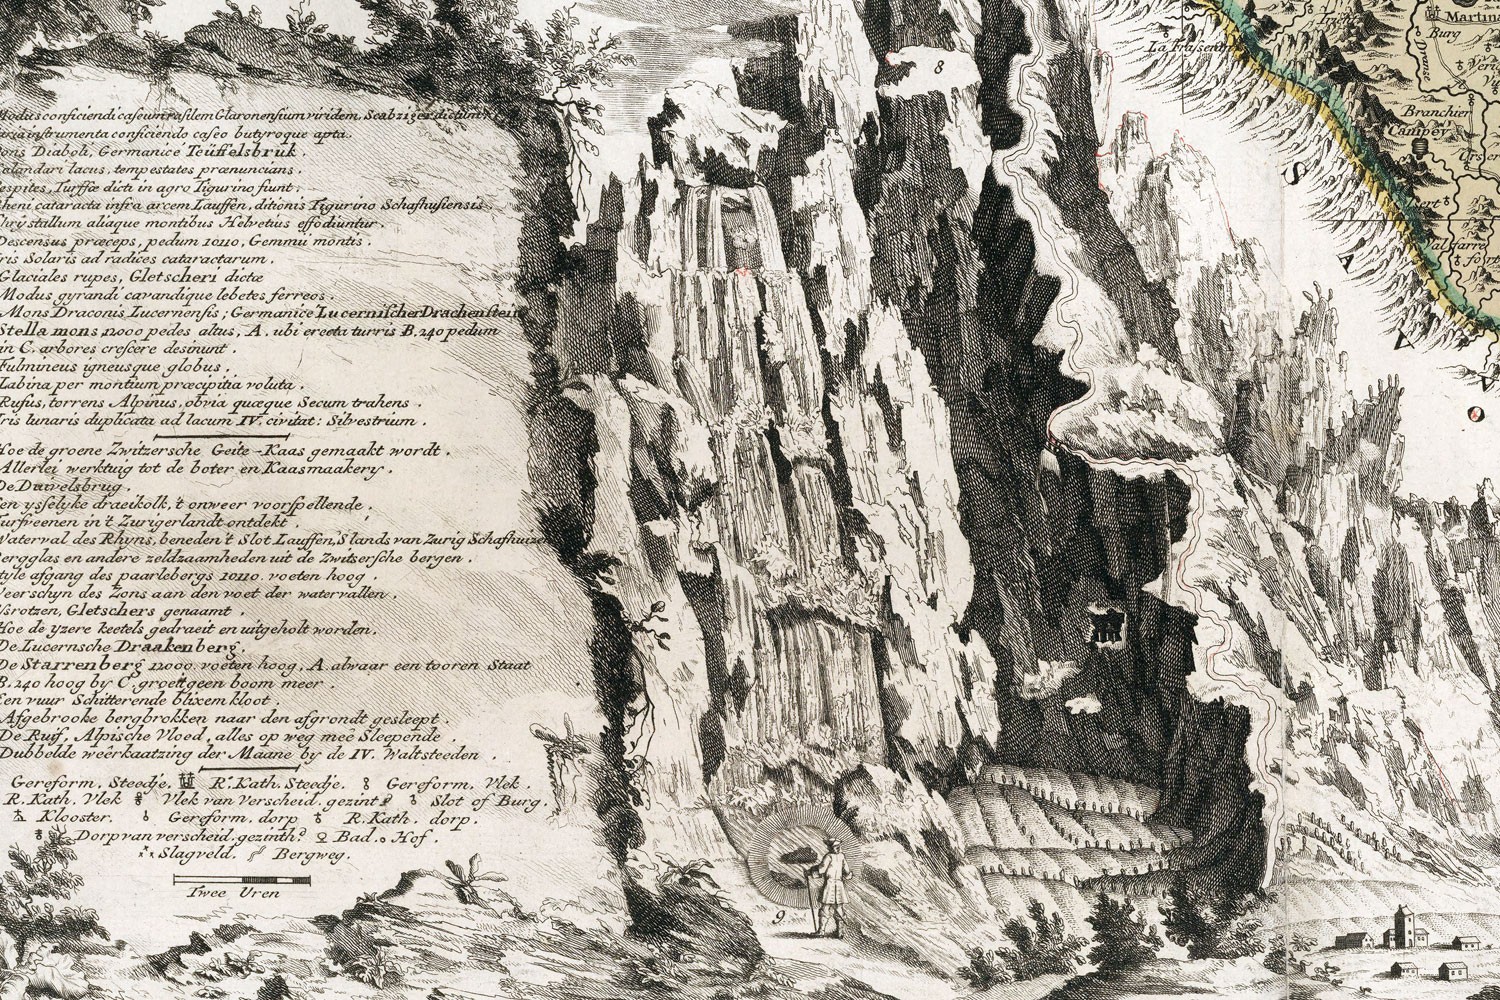 Modus conficiendi caseum rasilem Glaronensium viridem, Scabziger dictum
instrumenta conficiendo caseo butyroque apta.
Pons Diaboli, Germanice Teüffelsbrük.
Calandari lacus, tempestates prænuncians.
Cespites, Turffæ dicti in agro Tigurino fiunt.
Rheni cataracta infra arcem Lauffen, ditionis Tigurino Schafhusiensis
Chrystallum aliaque montibus Helvetiis effodiuntur.
Descensus præceps, pedum 10110, Gemmii montis.
Iris Solaris ad radices cataractarum.
Glaciales rupes, Gletscheri dictæ
Modus gyrandi cavandique lebetes ferreos.
Mons Draconis Lucernensis; Germanice Lucernischer Drachenstein
Stella mons 12000 pedes altus, A. ubi erecta turris B. 240 pedum
in C. arbores crescere desinunt.
Fulmineus igneusque globus.
Labina per montium præcipitia voluta.
Rufus, torrens Alpinus, obvia quæque Secum trahens.
Iris lunaris duplicata ad lacum IV. civitat: Silvestrium.
Hoe de groene Zwitzersche Geite-Kaas gemaakt wordt.
Allerlei werktuig tot de boter en Kaasmaakery.
De Duivelsbrug.
Een ysselyke draeikolk, 't onweer voorspellende.
Turfveenen in 't Zurigerlandt ontdekt.
Waterval des Rhyns, beneden 't Slot Lauffen, S'lands van Zurig Schafhuizen
Bergglas en andere zeldzaamheden uit de Zwitsersche bergen.
Style afgang des paarlebergs 10110. voeten hoog.
Weerschyn des Zons aan den voet der watervallen.
Ysrotzen, Gletschers genaamt.
Hoe de yzere keetels gedraeit en uitgeholt worden.
De Lucernsche Draakenberg.
De Starrenberg 12000. voeten hoog, A. alwaar een tooren Staat
B. 240 hoog by C. groeit geen boom meer.
Een vuur Schitterende blixem kloot.
Afgebrooke bergbrokken naar den afgrondt gesleept.
De Ruif, Alpische Vloed, alles op weg meê Sleepende.
Dubbelde weêrkaatzing der Maane by de IV. Waltsteeden.
Gereform. Steedje, R. Kath. Steedje. Gereform. Vlek.
R. Kath. Vlek Vlek van verscheid. gezint Slot of Burg.
Klooster. Gereform. dorp R. Kath. dorp.
Dorp van verscheid. gezinth? Bad. Hof.
Slagveld. Bergweg.
Twee Uren
8
9
Martina
Burg
Dranse
Branchier
Campey
S A V O